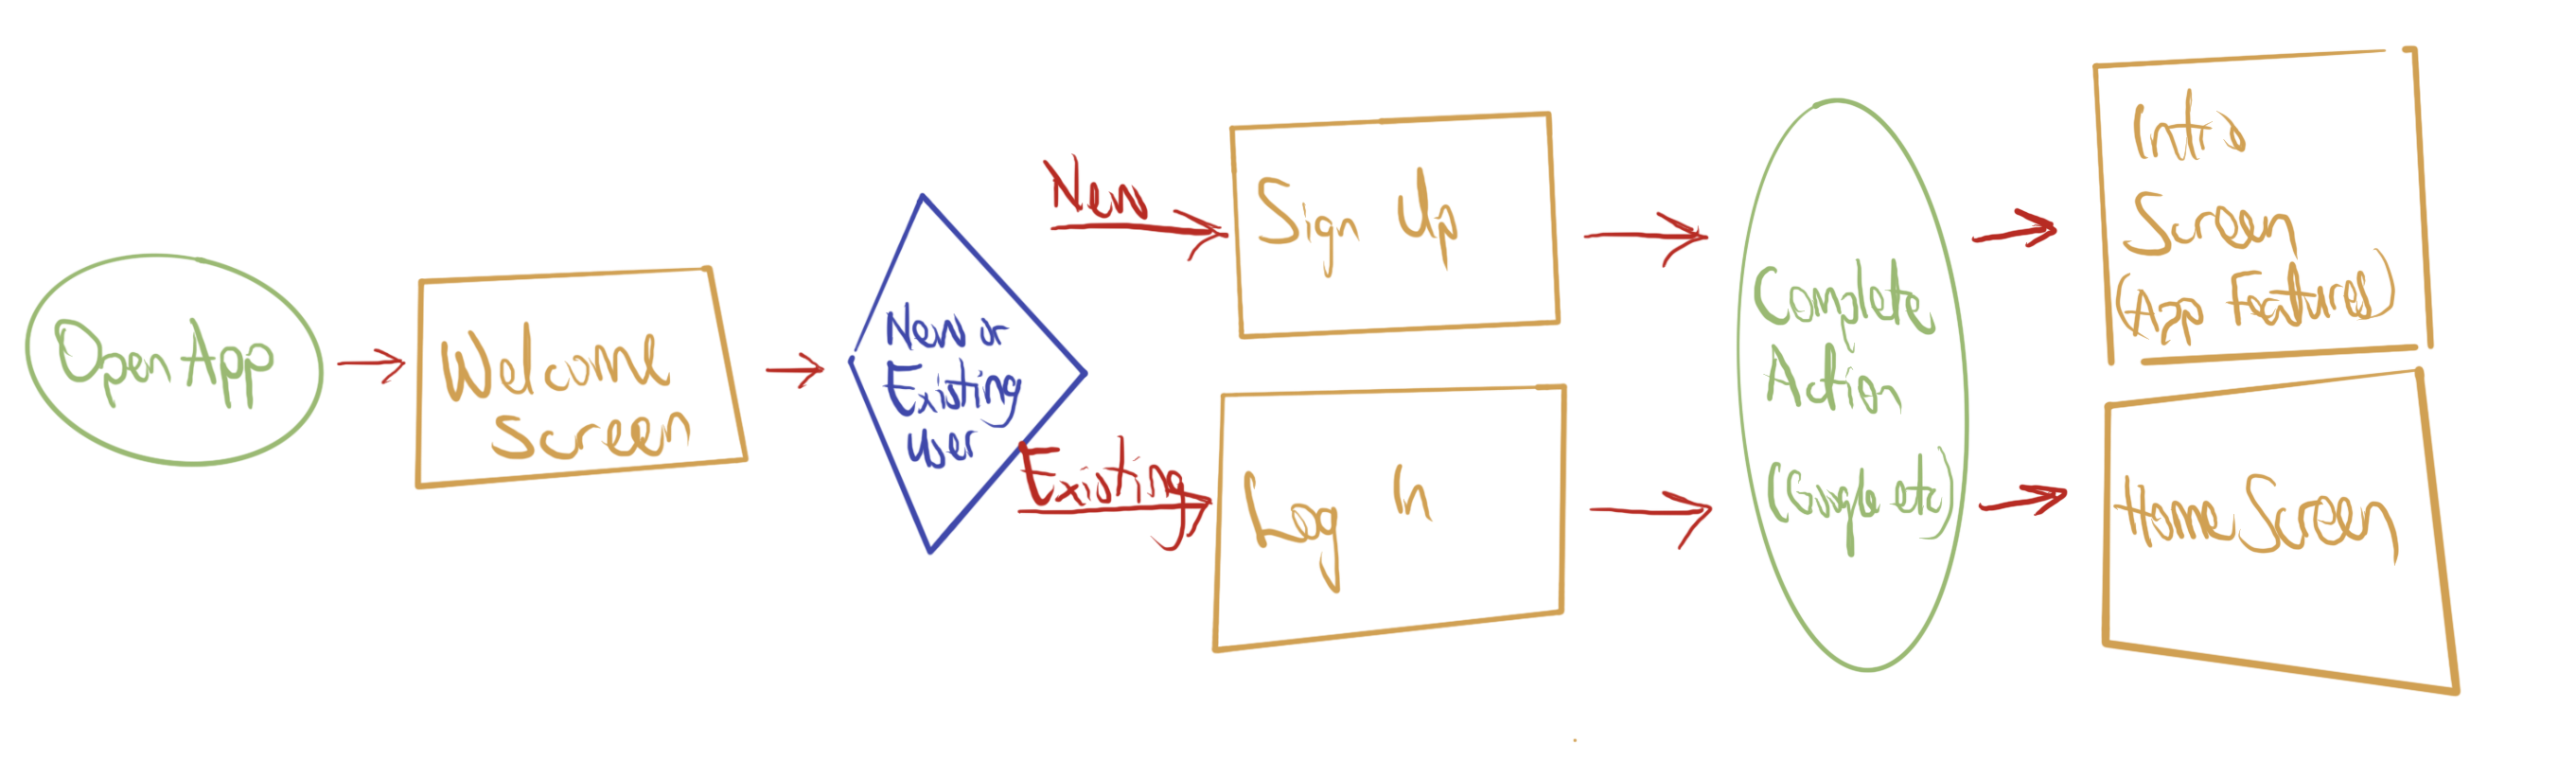 Open App
Welcome
Screen
New or
Existing
User
New
Existing
Sign Up
Log In
Complete
Action
(Google etc)
Intro
Screen
(App Features)
Home Screen